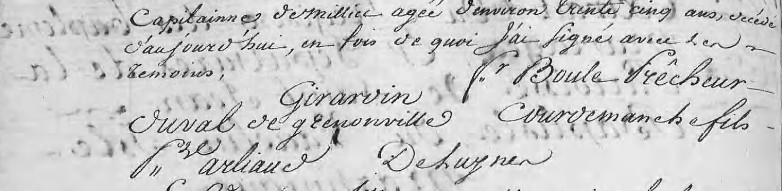 Capitainne de millice ageé d'environ trente cinq ans, décédé
d'aujourd'hui, en fois de quoi J'ai Signé avec les
temoins,
f.. Boule Prêcheur
Girardin
Duval de grenonville Courdemanche fils
Dehuynes